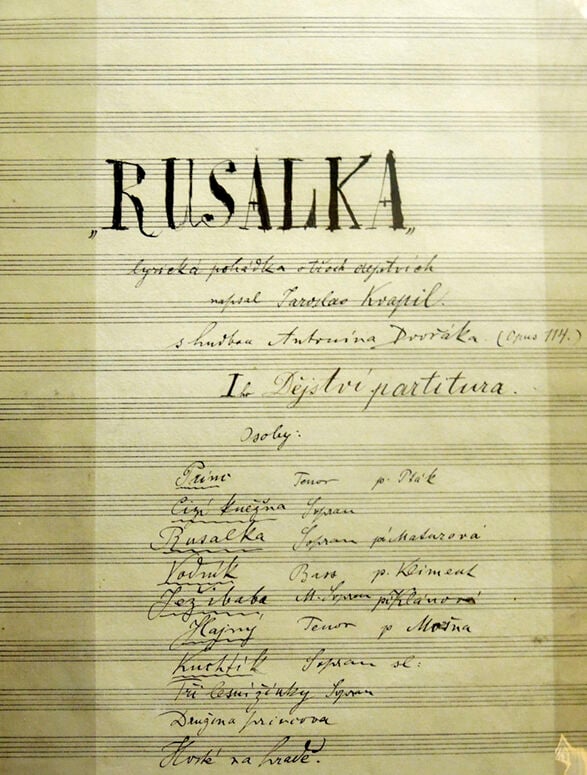 „RUSALKA„
lyrická pohádka o třech dějstvích
napsal Jaroslav Kvapil.
s hudbou Antonína Dvořáka. (Opus 114.)
Iho Dějství partitura.
Osoby:
Princ Tenor p. Pták
Cizí kněžna Sopran
Rusalka Sopran pí Maturová
Vodník Bass p. Kliment
Ježibaba M-Sopran
Hajný Tenor p Mošna
Kuchtík Sopran sl:
Tři lesní žínky Sopran
Družina princova
Hosté na hradě.